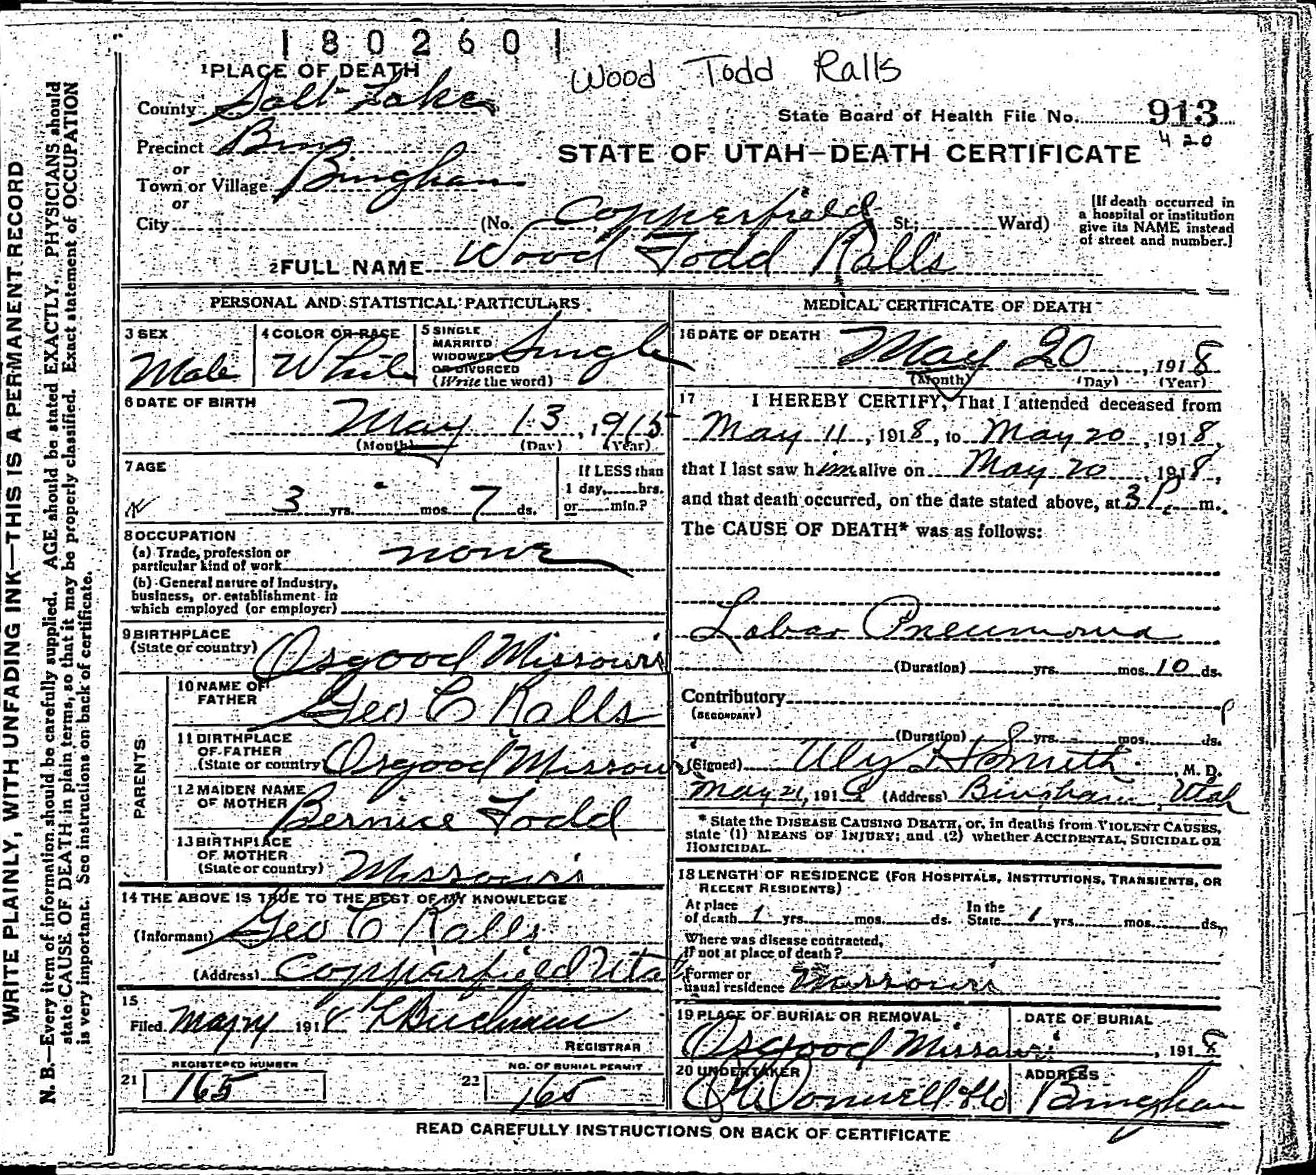 1802601
Wood Todd Ralls
1 PLACE OF DEATH
County Salt Lake
State Board of Health File No. 913
420
Precinct Bing
or
Town or Village Bingham
or
City
STATE OF UTAH—DEATH CERTIFICATE
(No. Copperfield St; Ward)
[If death occurred in a hospital or institution give its NAME instead of street and number.]
2 FULL NAME Wood Todd Ralls
PERSONAL AND STATISTICAL PARTICULARS
3 SEX
Male
4 COLOR OR RACE
White
5 SINGLE MARRIED WIDOWED OR DIVORCED (Write the word)
Single
6 DATE OF BIRTH
May 13, 1915
(Month) (Day) (Year)
7 AGE
3 yrs. mos. 7 ds.
If LESS than 1 day, hrs. or min.?
8 OCCUPATION
(a) Trade, profession or particular kind of work none
(b) General nature of Industry, business, or establishment in which employed (or employer)
9 BIRTHPLACE
(State or country) Osgood Missouri
PARENTS
10 NAME OF FATHER Geo C Ralls
11 BIRTHPLACE OF FATHER
(State or country) Osgood Missouri
12 MAIDEN NAME OF MOTHER Bernice Todd
13 BIRTHPLACE OF MOTHER
(State or country) Missouri
14 THE ABOVE IS TRUE TO THE BEST OF MY KNOWLEDGE
(Informant) Geo C Ralls
(Address) Copparfield Utah
15
Filed 1918
REGISTRAR
21 REGISTERED NUMBER
165
22 NO. OF BURIAL PERMIT
165
MEDICAL CERTIFICATE OF DEATH
16 DATE OF DEATH
May 20, 1918
(Month) (Day) (Year)
17 I HEREBY CERTIFY, That I attended deceased from
May 11, 1918, to May 20, 1918,
that I last saw him alive on May 20, 1918,
and that death occurred, on the date stated above, at 3 P. m.
The CAUSE OF DEATH* was as follows:
Lobar Pneumonia
(Duration) yrs. mos. 10 ds.
Contributory
(SECONDARY)
(Duration) yrs. mos. ds.
(Signed) Smith, M. D.
May 21, 191 (Address) Bingham, Utah
* State the DISEASE CAUSING DEATH, or, in deaths from VIOLENT CAUSES,
state (1) MEANS OF INJURY; and (2) whether ACCIDENTAL, SUICIDAL OR
HOMICIDAL.
18 LENGTH OF RESIDENCE (FOR HOSPITALS, INSTITUTIONS, TRANSIENTS, OR
RECENT RESIDENTS)
At place of death 1 yrs. mos. ds. In the State 1 yrs. mos. ds.
Where was disease contracted,
If not at place of death?
Former or usual residence Missouri
19 PLACE OF BURIAL OR REMOVAL
Osgood Missouri
DATE OF BURIAL
, 1918
20 UNDERTAKER
ADDRESS
Bingham
READ CAREFULLY INSTRUCTIONS ON BACK OF CERTIFICATE
WRITE PLAINLY, WITH UNFADING INK—THIS IS A PERMANENT RECORD
N. B.—Every item of information should be carefully supplied. AGE should be stated EXACTLY. PHYSICIANS should
state CAUSE OF DEATH in plain terms, so that it may be properly classified. Exact statement of OCCUPATION
is very important. See instructions on back of certificate.